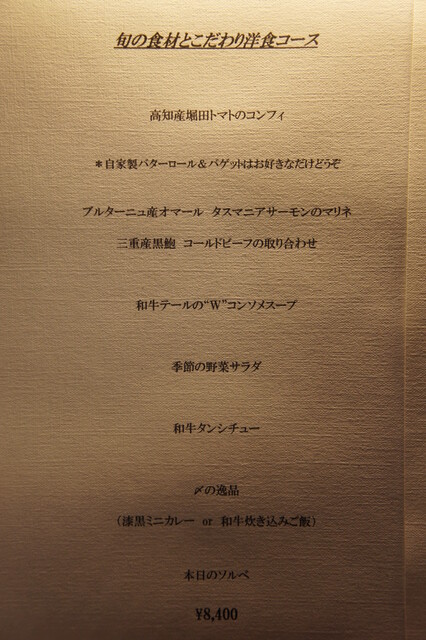 旬の食材とこだわり洋食コース
高知産堀田トマトのコンフィ
＊自家製バターロール＆バゲットはお好きなだけどうぞ
ブルターニュ産オマール　タスマニアサーモンのマリネ
三重産黒鮑　コールドビーフの取り合わせ
和牛テールの“W”コンソメスープ
季節の野菜サラダ
和牛タンシチュー
〆の逸品
（漆黒ミニカレー　or　和牛炊き込みご飯）
本日のソルベ
¥8,400